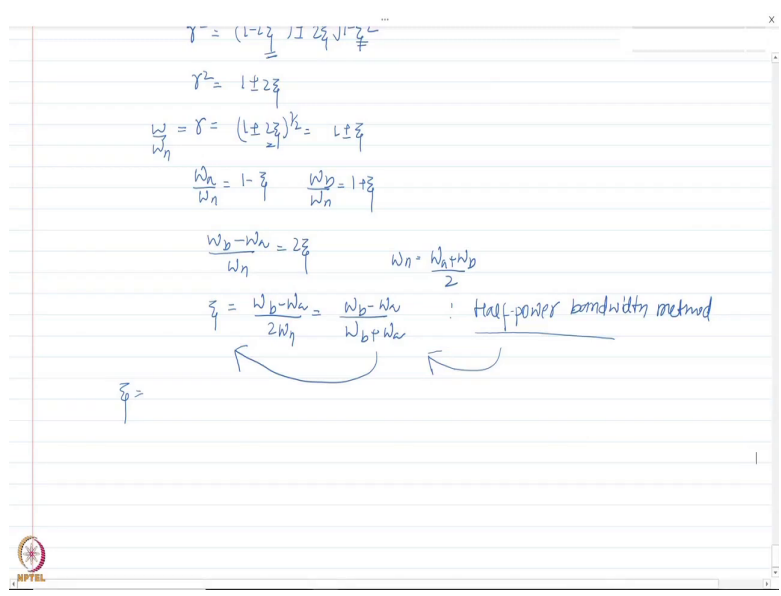 γ² = (1-2ξ²) ± 2ξ√1-ξ²
γ² = 1 ± 2ξ
ω/ωn = γ = (1 ± 2ξ)^1/2 = 1 ± ξ
ωa/ωn = 1 - ξ ωb/ωn = 1 + ξ
(ωb - ωa)/ωn = 2ξ ωn = (ωa + ωb)/2
ξ = (ωb - ωa)/2ωn = (ωb - ωa)/(ωb + ωa) : Half-power bandwidth method
ξ =
NPTEL